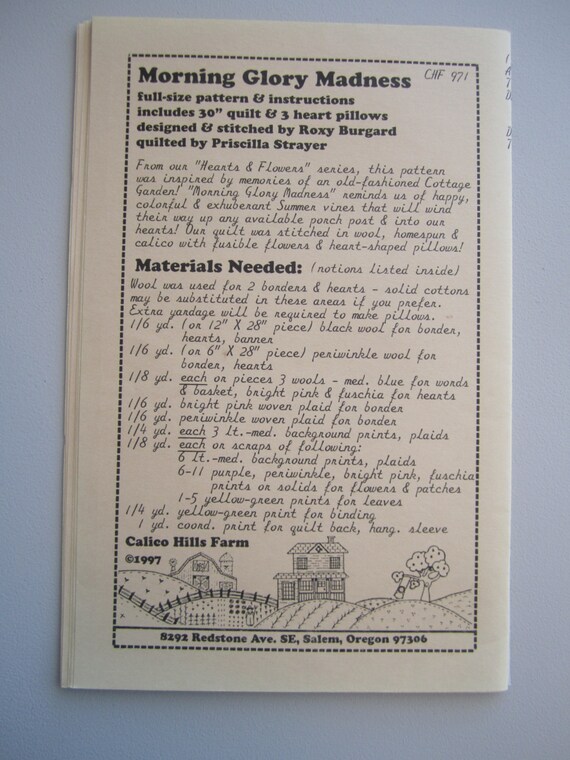 Morning Glory Madness CHF 971
full-size pattern & instructions
includes 30" quilt & 3 heart pillows
designed & stitched by Roxy Burgard
quilted by Priscilla Strayer
From our "Hearts & Flowers" series, this pattern
was inspired by memories of an old-fashioned Cottage
Garden! "Morning Glory Madness" reminds us of happy,
colorful & exhuberant Summer vines that will wind
their way up any available porch post & into our
hearts! Our quilt was stitched in wool, homespun &
calico with fusible flowers & heart-shaped pillows!
Materials Needed: (notions listed inside)
Wool was used for 2 borders & hearts - solid cottons
may be substituted in these areas if you prefer.
Extra yardage will be required to make pillows.
1/6 yd. (or 12" X 28" piece) black wool for border,
hearts, banner
1/6 yd. (or 6" X 28" piece) periwinkle wool for
border, hearts
1/8 yd. each or pieces 3 wools - med. blue for words
& basket, bright pink & fuschia for hearts
1/6 yd. bright pink woven plaid for border
1/6 yd. periwinkle woven plaid for border
1/4 yd. each 3 Lt.-med. background prints, plaids
1/8 yd. each or scraps of following:
6 Lt.-med. background prints, plaids
6-11 purple, periwinkle, bright pink, fuschia
prints or solids for flowers & patches
1-5 yellow-green prints for leaves
1/4 yd. yellow-green print for binding
1 yd. coord. print for quilt back, hang. sleeve
Calico Hills Farm
©1997
8292 Redstone Ave. SE, Salem, Oregon 97306